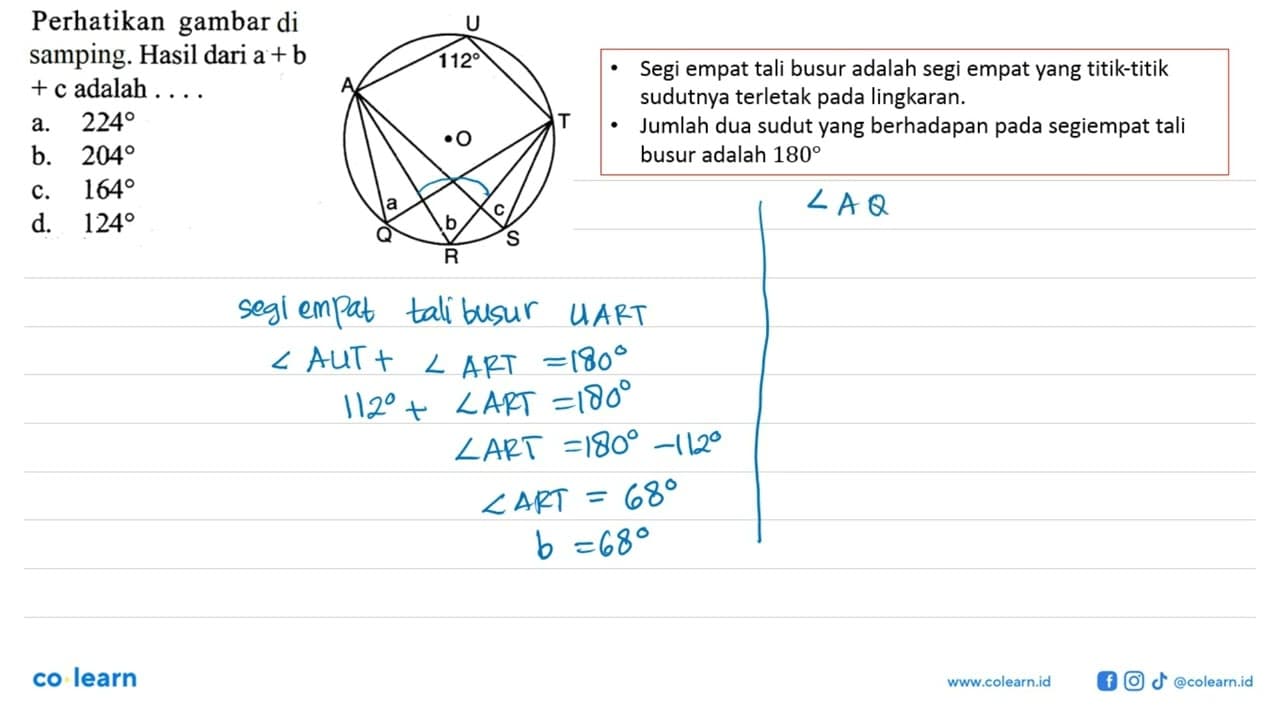 Perhatikan gambar di
samping. Hasil dari a + b
+ c adalah . . . .
a. 224°
b. 204°
c. 164°
d. 124°
U
112°
A
T
•O
a
c
b
Q
S
R
• Segi empat tali busur adalah segi empat yang titik-titik
sudutnya terletak pada lingkaran.
• Jumlah dua sudut yang berhadapan pada segiempat tali
busur adalah 180°
∠AQ
segi empat tali busur UART
∠AUT + ∠ART = 180°
112° + ∠ART = 180°
∠ART = 180° - 112°
∠ART = 68°
b = 68°
co learn
www.colearn.id
@colearn.id